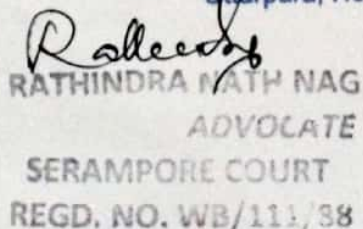 RATHINDRA NATH NAG
ADVOCATE
SERAMPORE COURT
REGD. NO. WB/111/88